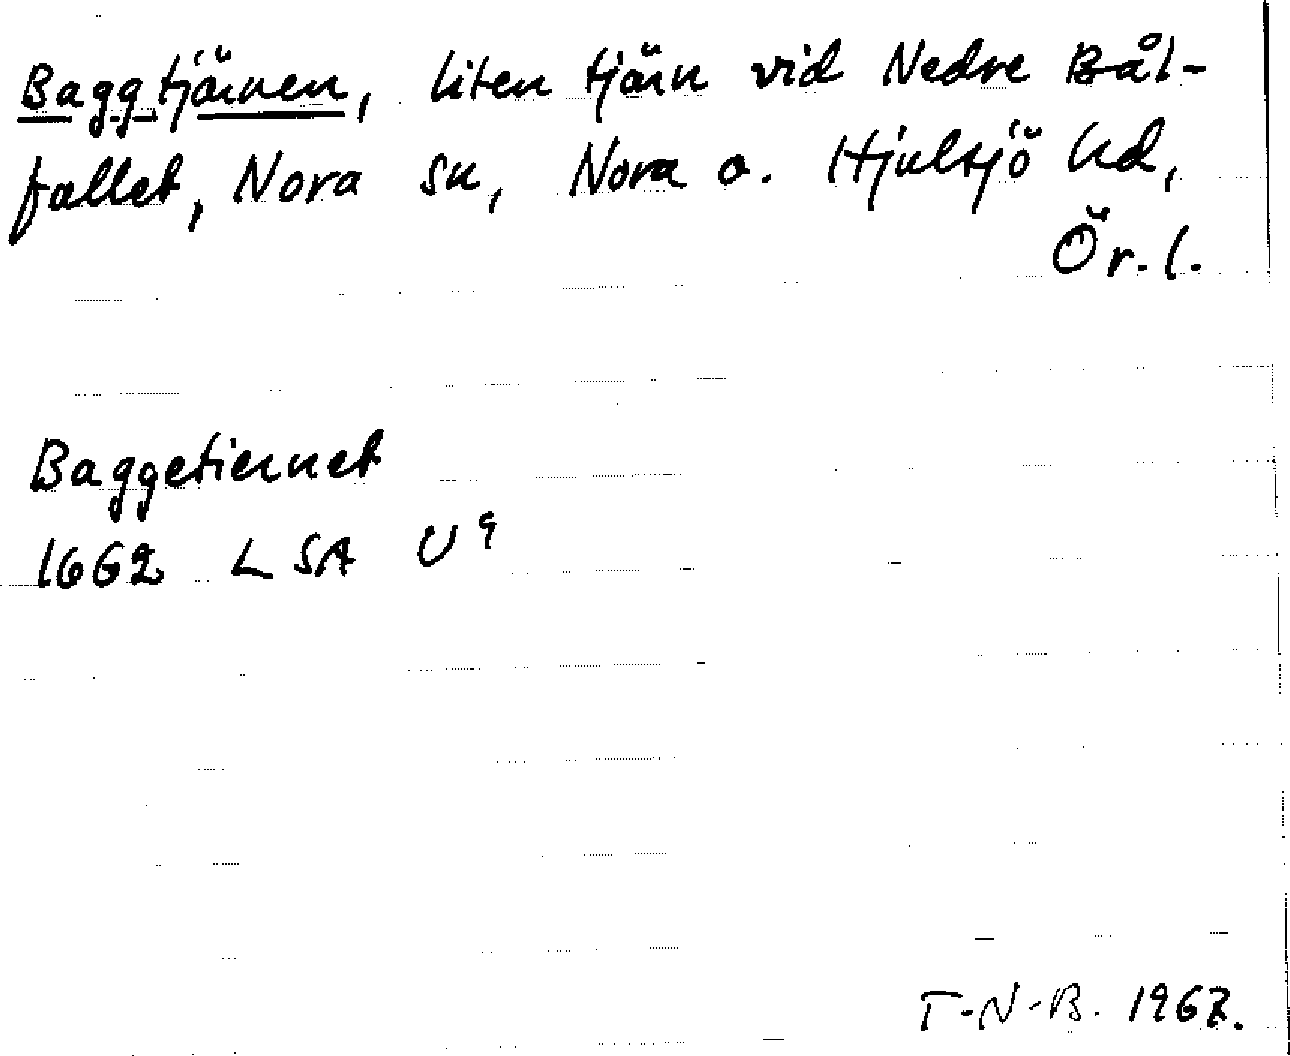 Baggtjärnen, liten tjärn vid Nedre Bål-
fallet, Nora sn, Nora o. Hjulsjö hd,
Ör. l.
Baggetiernet
1662 LSA U 9
T-N-B. 1967.